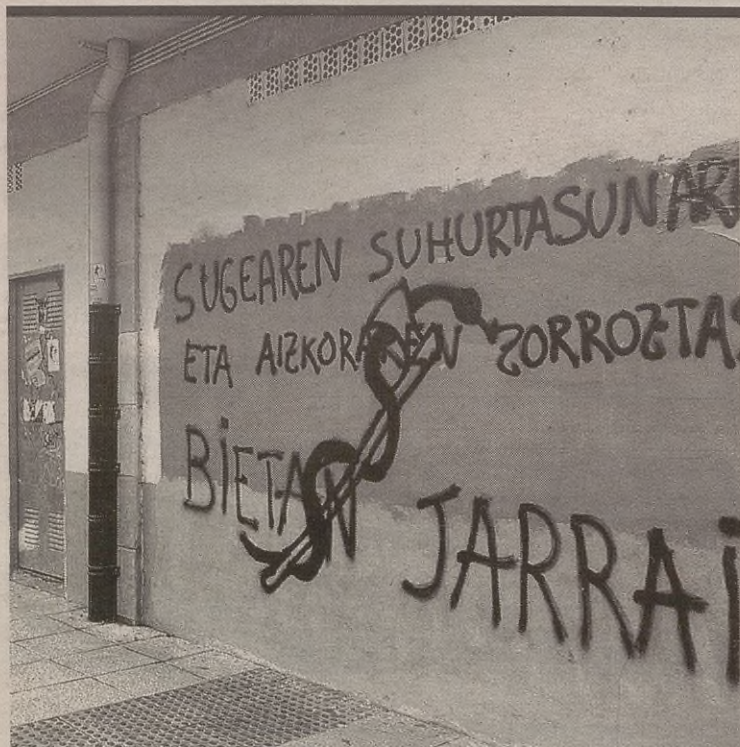 SUGEAREN SUHURTASUNAR
ETA AIZKORAREN ZORROZTAS
BIETAN JARRAI